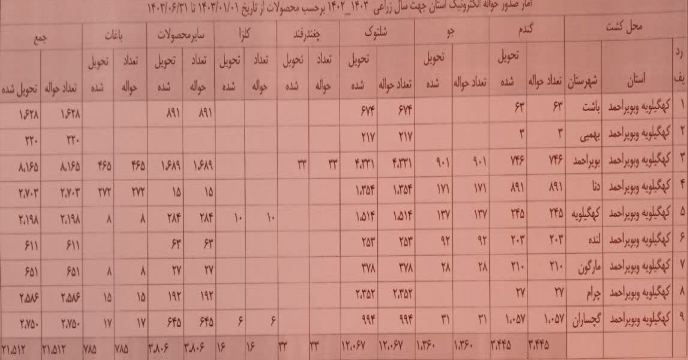 آمار صدور حواله الکترونیک استان جهت سال زراعی ۱۴۰۳_۱۴۰۲ برحسب محصولات از تاریخ ۱۴۰۳/۰۱/۰۱ تا ۱۴۰۳/۰۶/۳۱
محل کشت گندم جو شلتوک چغندرقند کلزا سایرمحصولات باغات جمع
ردیف استان شهرستان تعداد حواله تحویل شده تعداد حواله تحویل شده تعداد حواله تحویل شده تعداد حواله تحویل شده تعداد حواله تحویل شده تعداد حواله تحویل شده تعداد حواله تحویل شده تعداد حواله تحویل شده
۱ کهگیلویه وبویراحمد باشت ۶۳ ۶۳ ۶۷۴ ۶۷۴ ۸۹۱ ۸۹۱ ۱,۶۲۸ ۱,۶۲۸
۲ کهگیلویه وبویراحمد بهمیی ۳ ۳ ۲۱۷ ۲۱۷ ۲۲۰ ۲۲۰
۳ کهگیلویه وبویراحمد بویراحمد ۷۴۶ ۷۴۶ ۹۰۱ ۹۰۱ ۴,۳۳۱ ۴,۳۳۱ ۳۳ ۳۳ ۱,۶۸۹ ۱,۶۸۹ ۴۶۵ ۴۶۵ ۸,۱۶۵ ۸,۱۶۵
۴ کهگیلویه وبویراحمد دنا ۸۹۱ ۸۹۱ ۱۷۱ ۱۷۱ ۱,۳۵۴ ۱,۳۵۴ ۱۵ ۱۵ ۲۷۲ ۲۷۲ ۲,۷۰۳ ۲,۷۰۳
۵ کهگیلویه وبویراحمد کهگیلویه ۲۴۵ ۲۴۵ ۱۳۷ ۱۳۷ ۱,۵۱۴ ۱,۵۱۴ ۱۰ ۱۰ ۲۸۴ ۲۸۴ ۸ ۸ ۲,۱۹۸ ۲,۱۹۸
۶ کهگیلویه وبویراحمد لنده ۲۰۳ ۲۰۳ ۹۲ ۹۲ ۲۵۳ ۲۵۳ ۶۳ ۶۳ ۶۱۱ ۶۱۱
۷ کهگیلویه وبویراحمد مارگون ۲۱۰ ۲۱۰ ۲۸ ۲۸ ۳۷۸ ۳۷۸ ۲۷ ۲۷ ۸ ۸ ۶۵۱ ۶۵۱
۸ کهگیلویه وبویراحمد چرام ۲۷ ۲۷ ۲,۳۵۲ ۲,۳۵۲ ۱۹۲ ۱۹۲ ۱۵ ۱۵ ۲,۵۸۶ ۲,۵۸۶
۹ کهگیلویه وبویراحمد گچساران ۱,۰۵۷ ۱,۰۵۷ ۳۱ ۳۱ ۹۹۴ ۹۹۴ ۶ ۶ ۶۴۵ ۶۴۵ ۱۷ ۱۷ ۲,۷۵۰ ۲,۷۵۰
۳,۴۴۵ ۳,۴۴۵ ۱,۳۶۰ ۱,۳۶۰ ۱۲,۰۶۷ ۱۲,۰۶۷ ۳۳ ۳۳ ۱۶ ۱۶ ۳,۸۰۶ ۳,۸۰۶ ۷۸۵ ۷۸۵ ۲۱,۵۱۲ ۲۱,۵۱۲